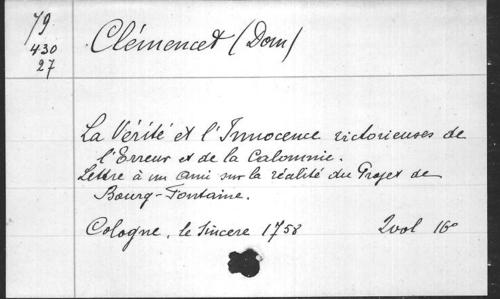 79
430
27
Clémencet (Dom)
La Vérité et l'Innocence victorieuses de
l'Erreur et de la Calomnie.
Lettre à un Ami sur la réalité du Projet de
Bourg-Fontaine.
Cologne, le Sincere 1758 2 vol 16°